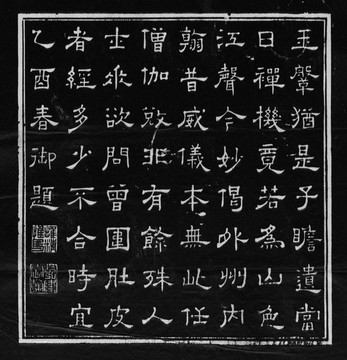 玉鞶猶是子瞻遺當
日禪機竟若為山色
江聲今妙偈外州內
翰昔威儀本無此任
僧伽敚非有餘殊人
士眾欲問曾圍肚皮
者經多少不合時宜
乙酉春御題